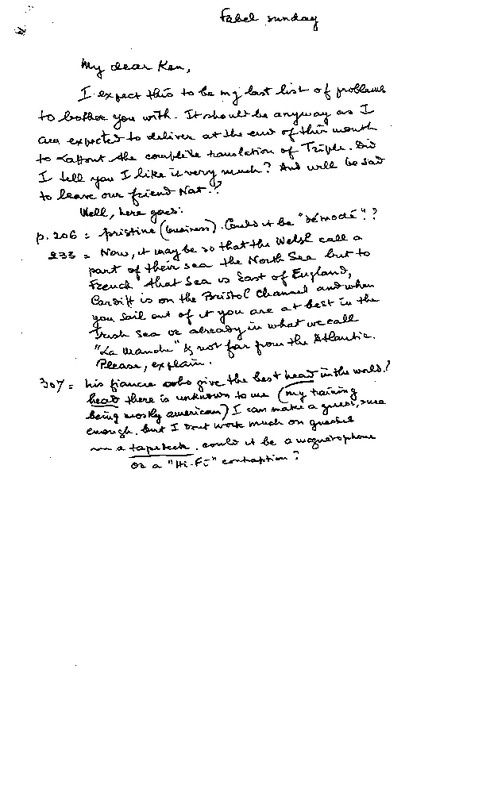 Fabel sunday
My dear Ken,
I expect this to be my last list of problems
to bother you with. It should be anyway as I
am expected to deliver at the end of this month
to Laffont the complete translation of Triple. Did
I tell you I like it very much? And will be sad
to leave our friend Nat.?
Well, here goes:
p. 206 = pristine (business). Could it be "démodé"?
233 = Now, it may be so that the Welsh call a
part of their sea the North Sea but to
French that Sea is East of England,
Cardiff is on the Bristol Channel and when
you sail out of it you are at best in the
Irish Sea or already in what we call
"La Manche" & not far from the Atlantic.
Please, explain.
307 = his fiancee who give the best head in the world?
head there is unknown to me (my training
being mostly american) I can make a guess, sure
enough. but I dont work much on guesses
a tapedeck. could it be a magnetophone
or a "Hi-Fi" contraption?